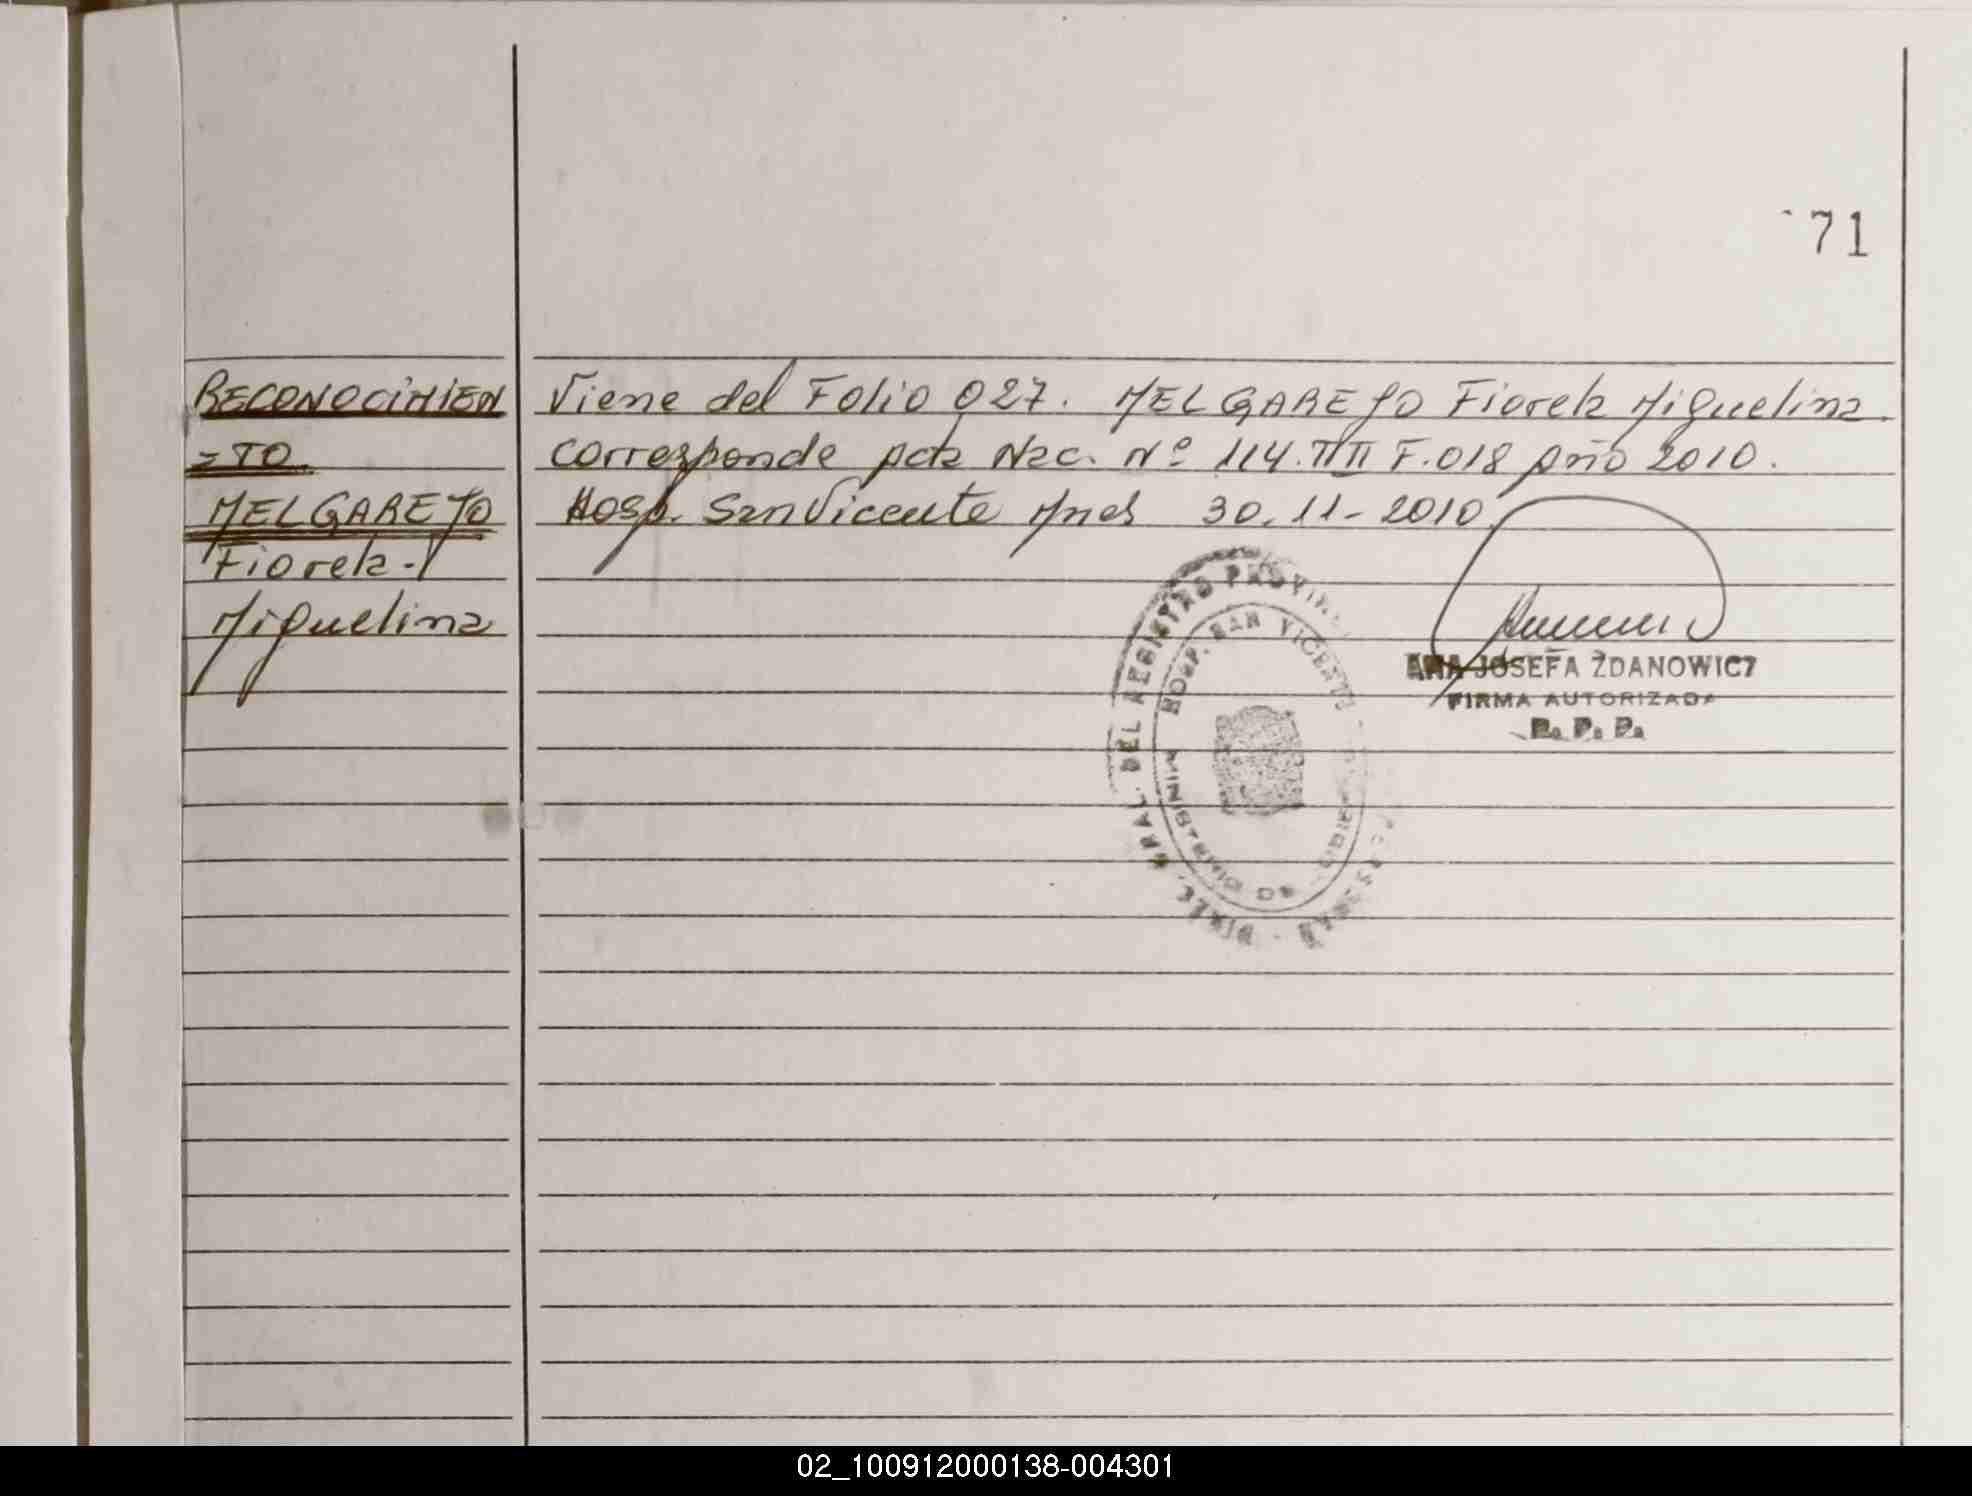 71
RECONOCIMIEN
=TO
MELGAREJO
Fiorela
Miguelina
Viene del Folio 027. MELGAREJO Fiorela Miguelina.
Corresponde acta Nac. Nº 114. TIII F.018 año 2010.
Hosp. San Vicente Mnes 30-11-2010
ANA JOSEFA ZDANOWICZ
FIRMA AUTORIZADA
R. P. P.
DIREC. GRAL. DEL REGISTRO PROVIN
PERSONAS
HOSP. SAN VICENTE
MINISTERIO
02_100912000138-004301